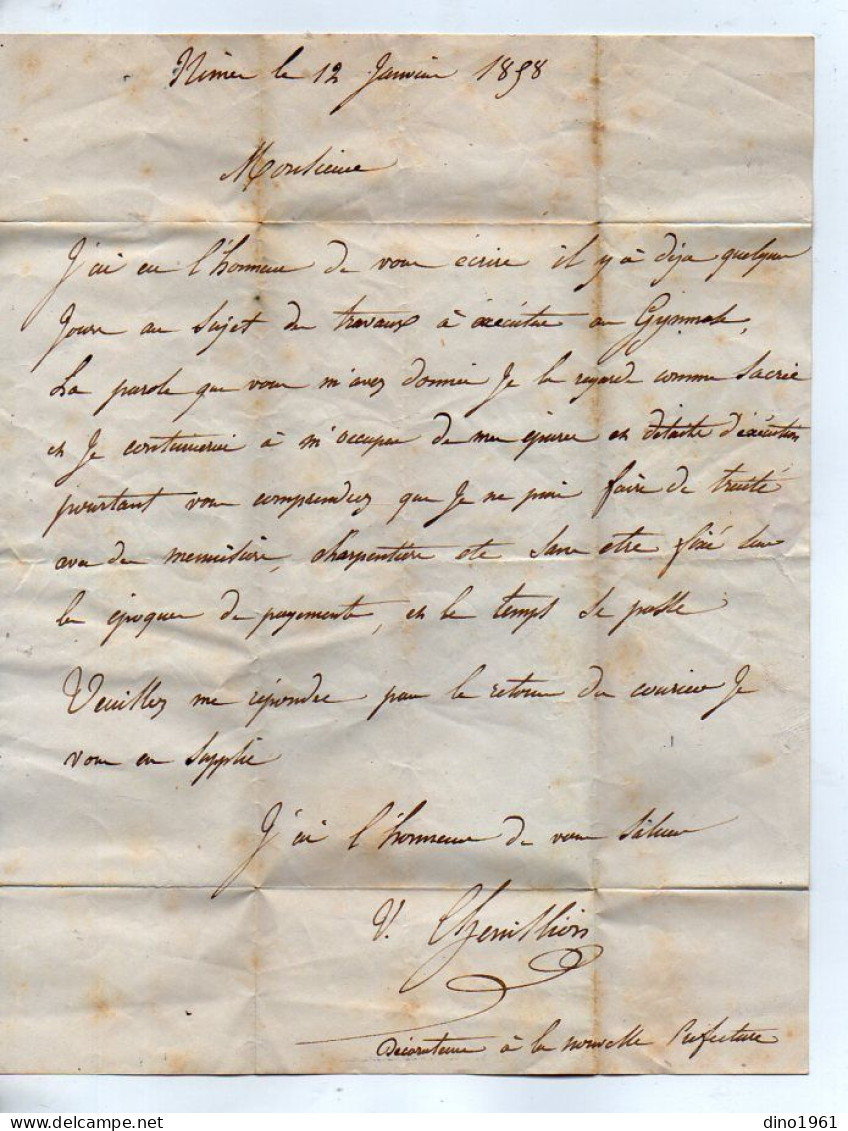 Nimes le 12 Janvier 1858
Monsieur
J'ai eu l'honneur de vous écrire il y à déja quelques
Jours au Sujet des travaux à éxécuter au Gymnase,
La parole que vous m'avez donnée Je la regarde comme Sacrée
et Je continuerai à m'occuper de mes épures et détails d'éxécution
pourtant vous comprendrez que Je ne puis faire de traité
avec des menuisiers, charpentiers etc Sans etre fixé Sur
les époques de payements, et le temps Se passe
Veuillez me répondre par le retour du courier Je
vous en Supplie
J'ai l'honneur de vous Saluer
V. Chenillion
Décorateur à la nouvelle Préfecture
dino1961